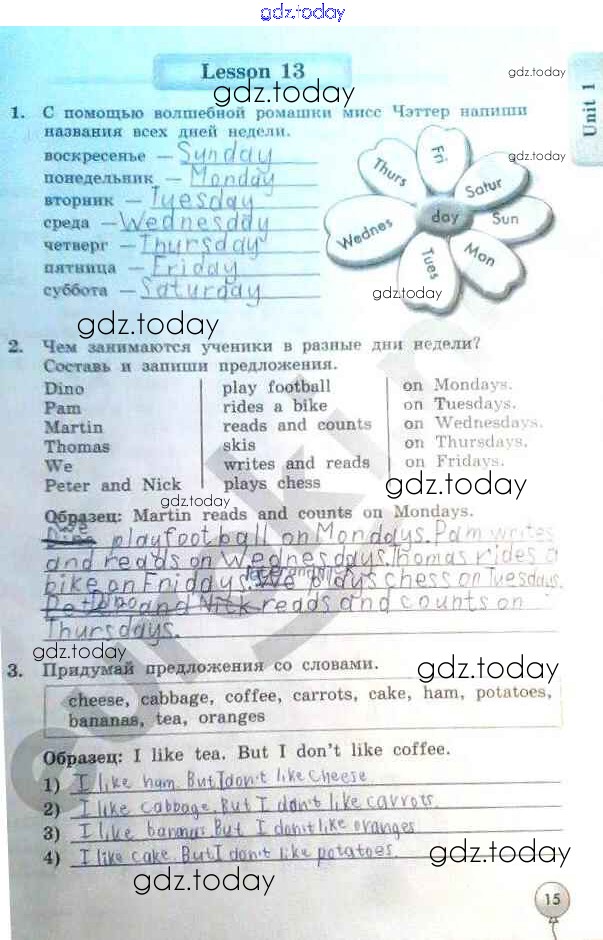 gdz.today
Lesson 13
gdz.today
gdz.today
Unit 1
1. С помощью волшебной ромашки мисс Чэттер напиши
названия всех дней недели.
воскресенье — Sunday
понедельник — Monday
вторник — Tuesday
среда — Wednesday
четверг — Thursday
пятница — Friday
суббота — Saturday
Fri
gdz.today
Thurs
Satur
day
Sun
Wednes
Mon
Tues
gdz.today
gdz.today
2. Чем занимаются ученики в разные дни недели?
Составь и запиши предложения.
Dino play football on Mondays.
Pam rides a bike on Tuesdays.
Martin reads and counts on Wednesdays.
Thomas skis on Thursdays.
We writes and reads on Fridays.
Peter and Nick plays chess
gdz.today
gdz.today
Образец: Martin reads and counts on Mondays.
We
Dino play football on Mondays. Pam writes
and reads on Wednesdays. Thomas rides a
bike on Fridays. We plays chess on Tuesdays.
Dino
and Nick reads and counts on
Thursdays.
gdz.today
3. Придумай предложения со словами.
gdz.today
cheese, cabbage, coffee, carrots, cake, ham, potatoes,
bananas, tea, oranges
Образец: I like tea. But I don't like coffee.
1) I like ham. But I don't like cheese
2) I like cabbage. But I don't like carrots.
3) I like bananas. But I don't like oranges
4) I like cake. But I don't like potatoes.
gdz.today
gdz.today
15